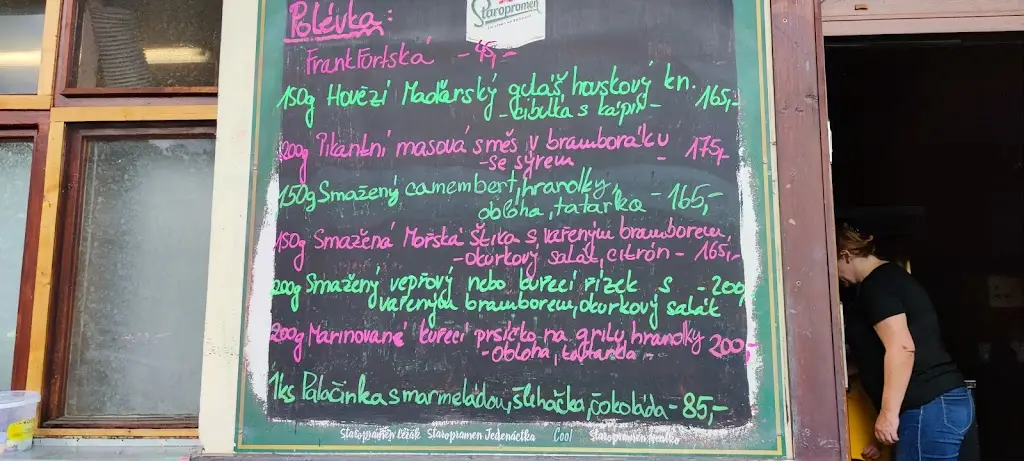 Staropramen
Polévka:
FrankFurtská - 45,-
150g Hovězí Maďarský guláš, houskový kn.
- cibulka s kápií - 165,-
200g Pikantní masová směs v bramboráku
- se sýrem - 175,-
150g Smažený camembert, hranolky,
obloha, tatarka - 165,-
150g Smažená Mořská štika s vařeným bramborem,
- okurkový salát, citrón - 165,-
200g Smažený vepřový nebo kuřecí řízek s - 200,-
vařeným bramborem, okurkový salát
200g Marinované kuřecí prsíčko na grilu, hranolky
- obloha, tatarka - 200,-
1ks Palačinka s marmeládou, šlehačka, čokoláda - 85,-
Staropramen Ležák Staropramen Jedenáctka Cool Staropramen Nealko